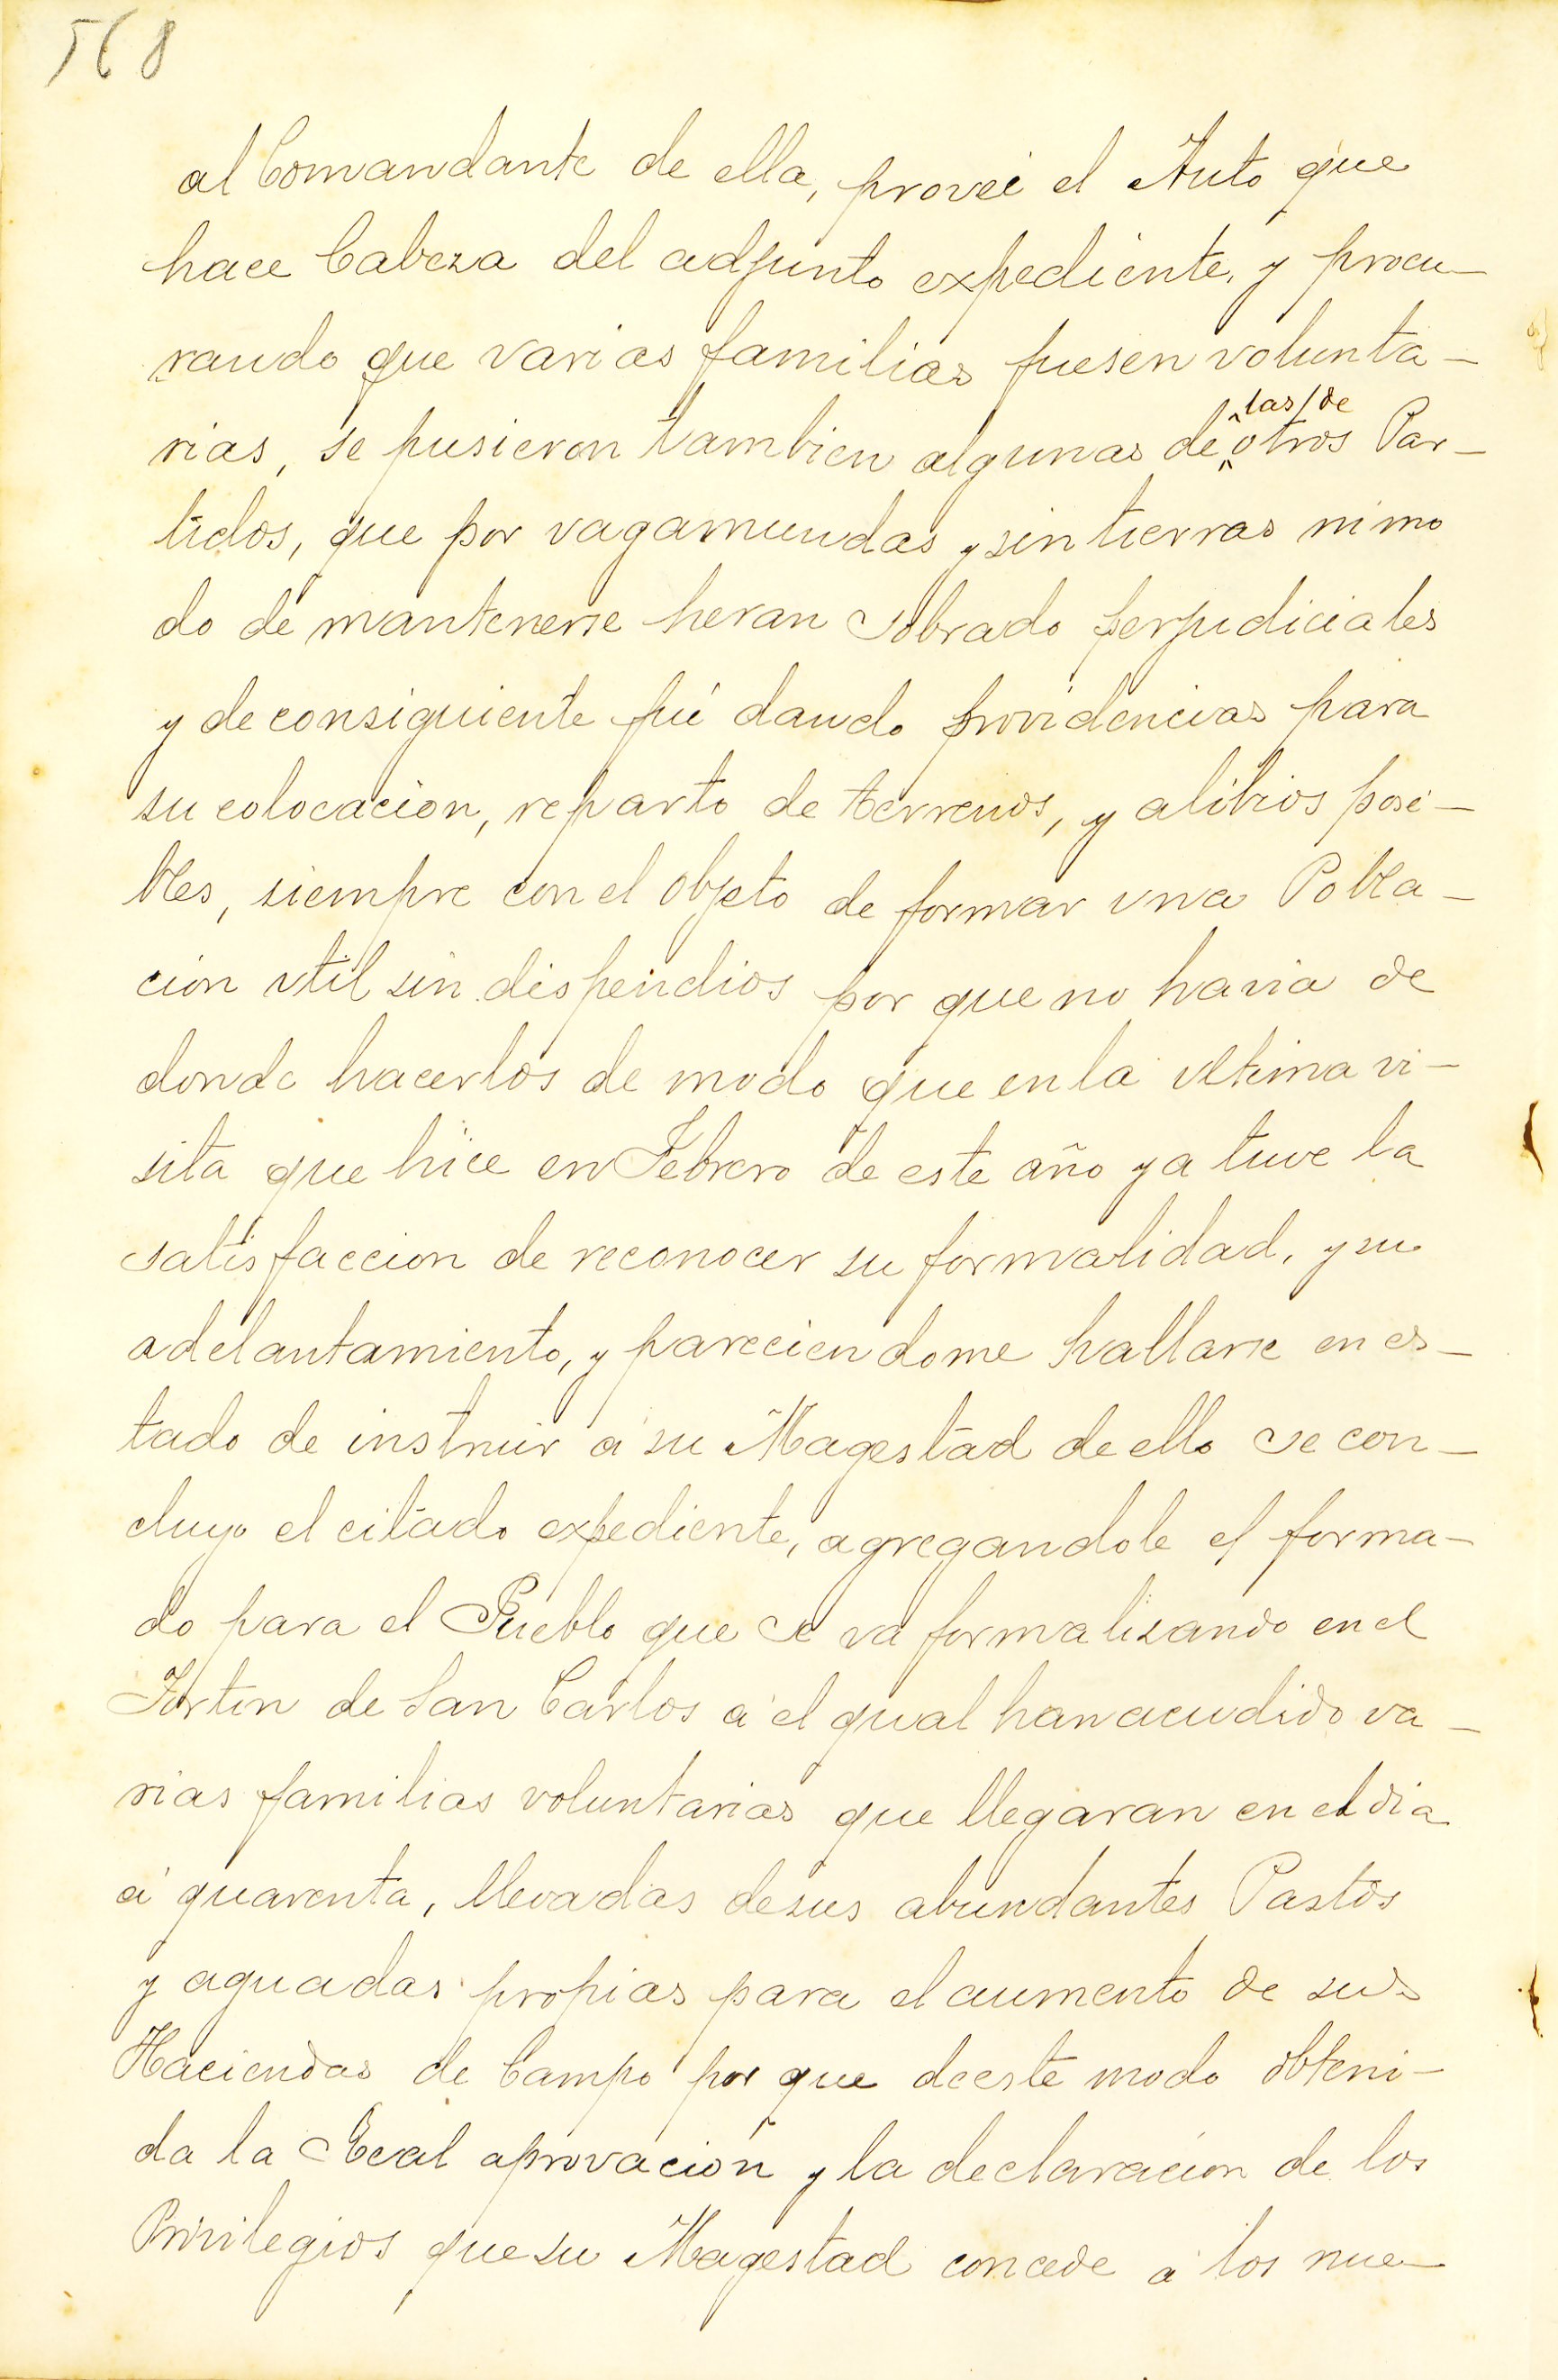 568
al Comandante de ella, proveì el Auto que
hace Cabeza del adjunto expediente, y procu-
rando que varias familias fuesen volunta-
las/de
rias, se pusieron tambien algunas de otros Par-
tidos, que por vagamundas y sin tierras ni mo
do de mantenerse heran sobrado perjudiciales
y de consiguiente fuì dando providencias para
su colocacion, reparto de terrenos, y alibios posi-
bles, siempre con el objeto de formar vna Pobla-
cion vtil sin dispendios por que no havia de
donde hacerlos de modo que en la vltima vi-
sita que hice en Febrero de este año ya tuve la
satisfaccion de reconocer su formalidad, y su
adelantamiento, y pareciendome hallarse en es-
tado de instruir á su Magestad de ello se con-
cluyo el citado expediente, agregandole el forma-
do para el Pueblo que se va formalizando en el
Fortin de San Carlos á el qual han acudido va-
rias familias voluntarias que llegaran en el dia
á quarenta, llevadas de sus abundantes Pastos
y aguadas propias para el aumento de sus
Haciendas de Campo por que de este modo obteni-
da la Real aprovacion y la declaracion de los
Privilegios que su Magestad concede á los nue-